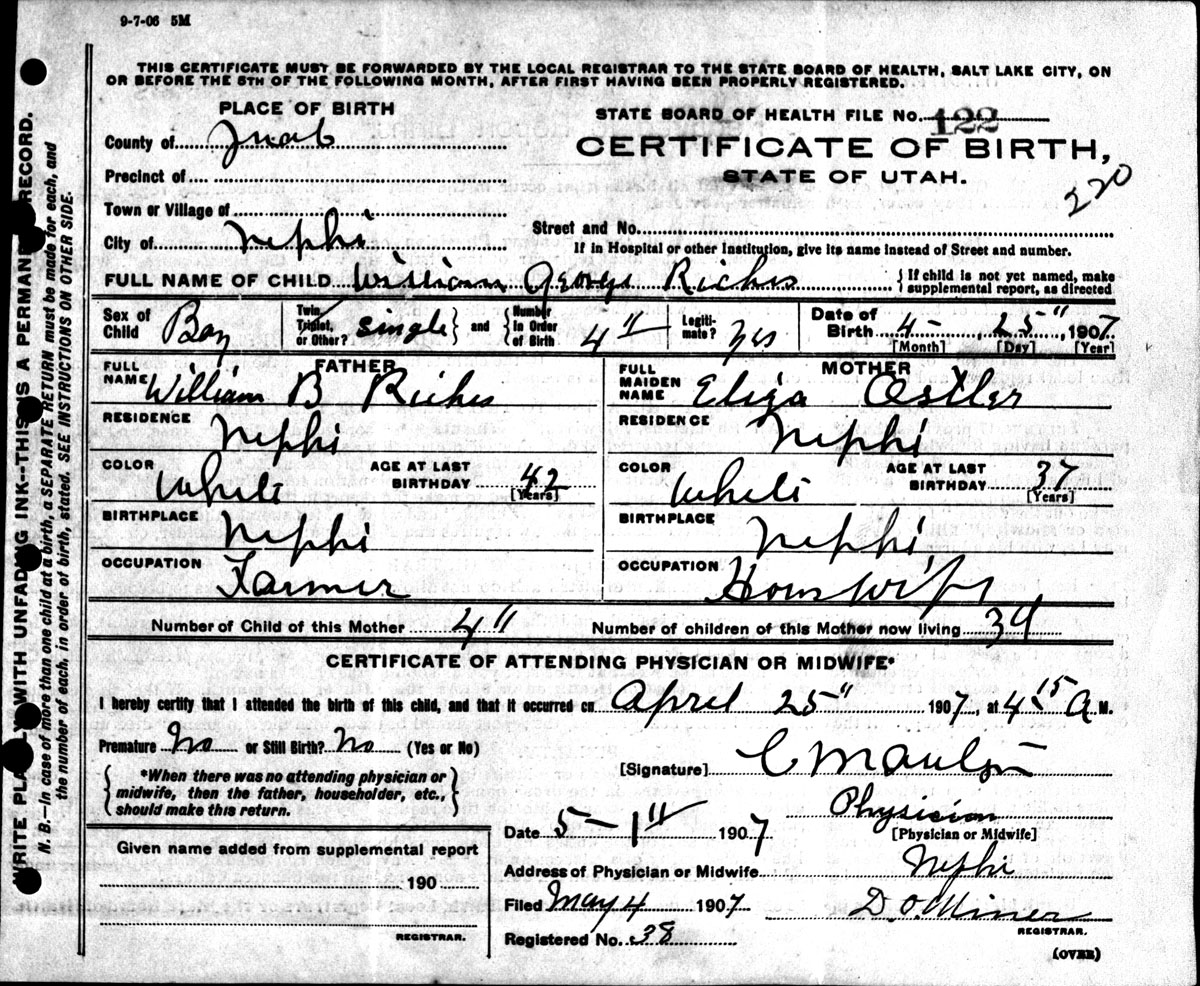 9-7-06 5M
THIS CERTIFICATE MUST BE FORWARDED BY THE LOCAL REGISTRAR TO THE STATE BOARD OF HEALTH, SALT LAKE CITY, ON
OR BEFORE THE 5TH OF THE FOLLOWING MONTH, AFTER FIRST HAVING BEEN PROPERLY REGISTERED.
WRITE PLAINLY WITH UNFADING INK--THIS IS A PERMANENT RECORD.
N. B.—In case of more than one child at a birth, a SEPARATE RETURN must be made for each, and
the number of each, in order of birth, stated. SEE INSTRUCTIONS ON OTHER SIDE.
PLACE OF BIRTH
County of Juab
Precinct of
Town or Village of
City of Nephi
STATE BOARD OF HEALTH FILE No. 122
CERTIFICATE OF BIRTH,
STATE OF UTAH.
220
Street and No.
If in Hospital or other Institution, give its name instead of Street and number.
FULL NAME OF CHILD William George Riches
{If child is not yet named, make
supplemental report, as directed
Sex of Child Boy
Twin, Triplet, or Other? single} and {Number In Order of Birth 4"
Legitimate? yes
Date of Birth 4- 25" 1907
[Month] [Day] [Year]
FATHER
FULL NAME William B Riches
RESIDENCE Nephi
COLOR White
AGE AT LAST BIRTHDAY 42
[Years]
BIRTHPLACE Nephi
OCCUPATION Farmer
MOTHER
FULL MAIDEN NAME Eliza Ostler
RESIDENCE Nephi
COLOR White
AGE AT LAST BIRTHDAY 37
[Years]
BIRTHPLACE Nephi
OCCUPATION Houswife
Number of Child of this Mother 4"
Number of children of this Mother now living
CERTIFICATE OF ATTENDING PHYSICIAN OR MIDWIFE*
I hereby certify that I attended the birth of this child, and that it occurred on April 25" 1907, at 4 15 A M.
Premature No or Still Birth? No (Yes or No)
{*When there was no attending physician or
midwife, then the father, householder, etc.,
should make this return.}
[Signature]
Physician
[Physician or Midwife]
Date 5-1" 1907
Address of Physician or Midwife Nephi
Filed May 4 1907
D. O. Miner
REGISTRAR.
Registered No. 38
Given name added from supplemental report
190
REGISTRAR.
(OVER)